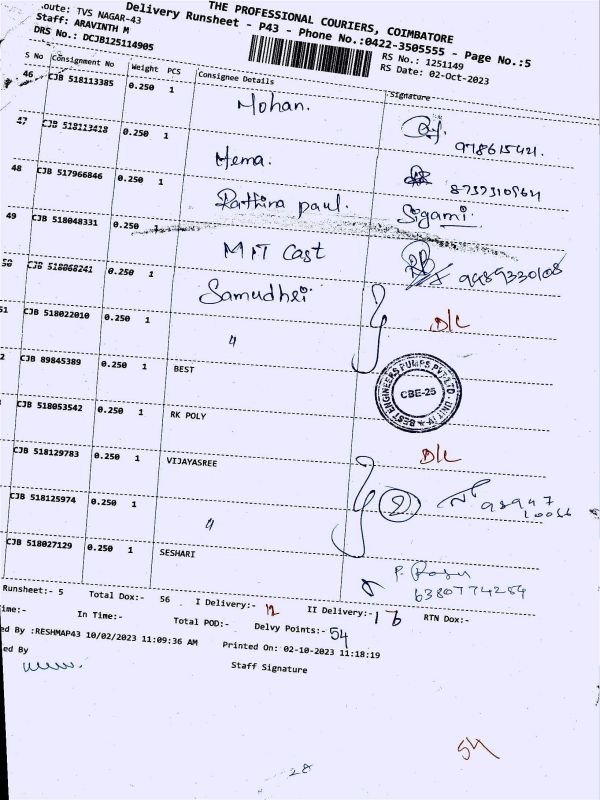 THE PROFESSIONAL COURIERS, COIMBATORE
oute: TVS NAGAR-43 Delivery Runsheet - P43 - Phone No.:0422-3505555 - Page No.:5
Staff: ARAVINTH M RS No.: 1251149
DRS No.: DCJB125114905 RS Date: 02-Oct-2023
S No Consignment No Weight PCS Consignee Details Signature
46 CJB 518113385 0.250 1 Mohan.
47 CJB 518113418 0.250 1 Hema.
48 CJB 517966846 0.250 1 Rathina paul. Sigami.
49 CJB 518048331 0.250 MIT Cast 9489330108
50 CJB 518068241 0.250 1 Samudhei
51 CJB 518022010 0.250 1 " D/L
2 CJB 89845389 0.250 1 BEST
BEST ENGINEERS PUMPS PVT LTD - UNIT IV CBE-25
CJB 518053542 0.250 1 RK POLY
CJB 518129783 0.250 1 VIJAYASREE D/L
CJB 518125974 0.250 1 " 2
CJB 518027129 0.250 1 SESHARI
6380774254
Runsheet:- 5 Total Dox:- 56 I Delivery:- 12 II Delivery:- RTN Dox:-
ime:- In Time:- Total POD:- Delvy Points:- 54
ed By :RESHMAP43 10/02/2023 11:09:36 AM Printed On: 02-10-2023 11:18:19
ed By Staff Signature
54
28